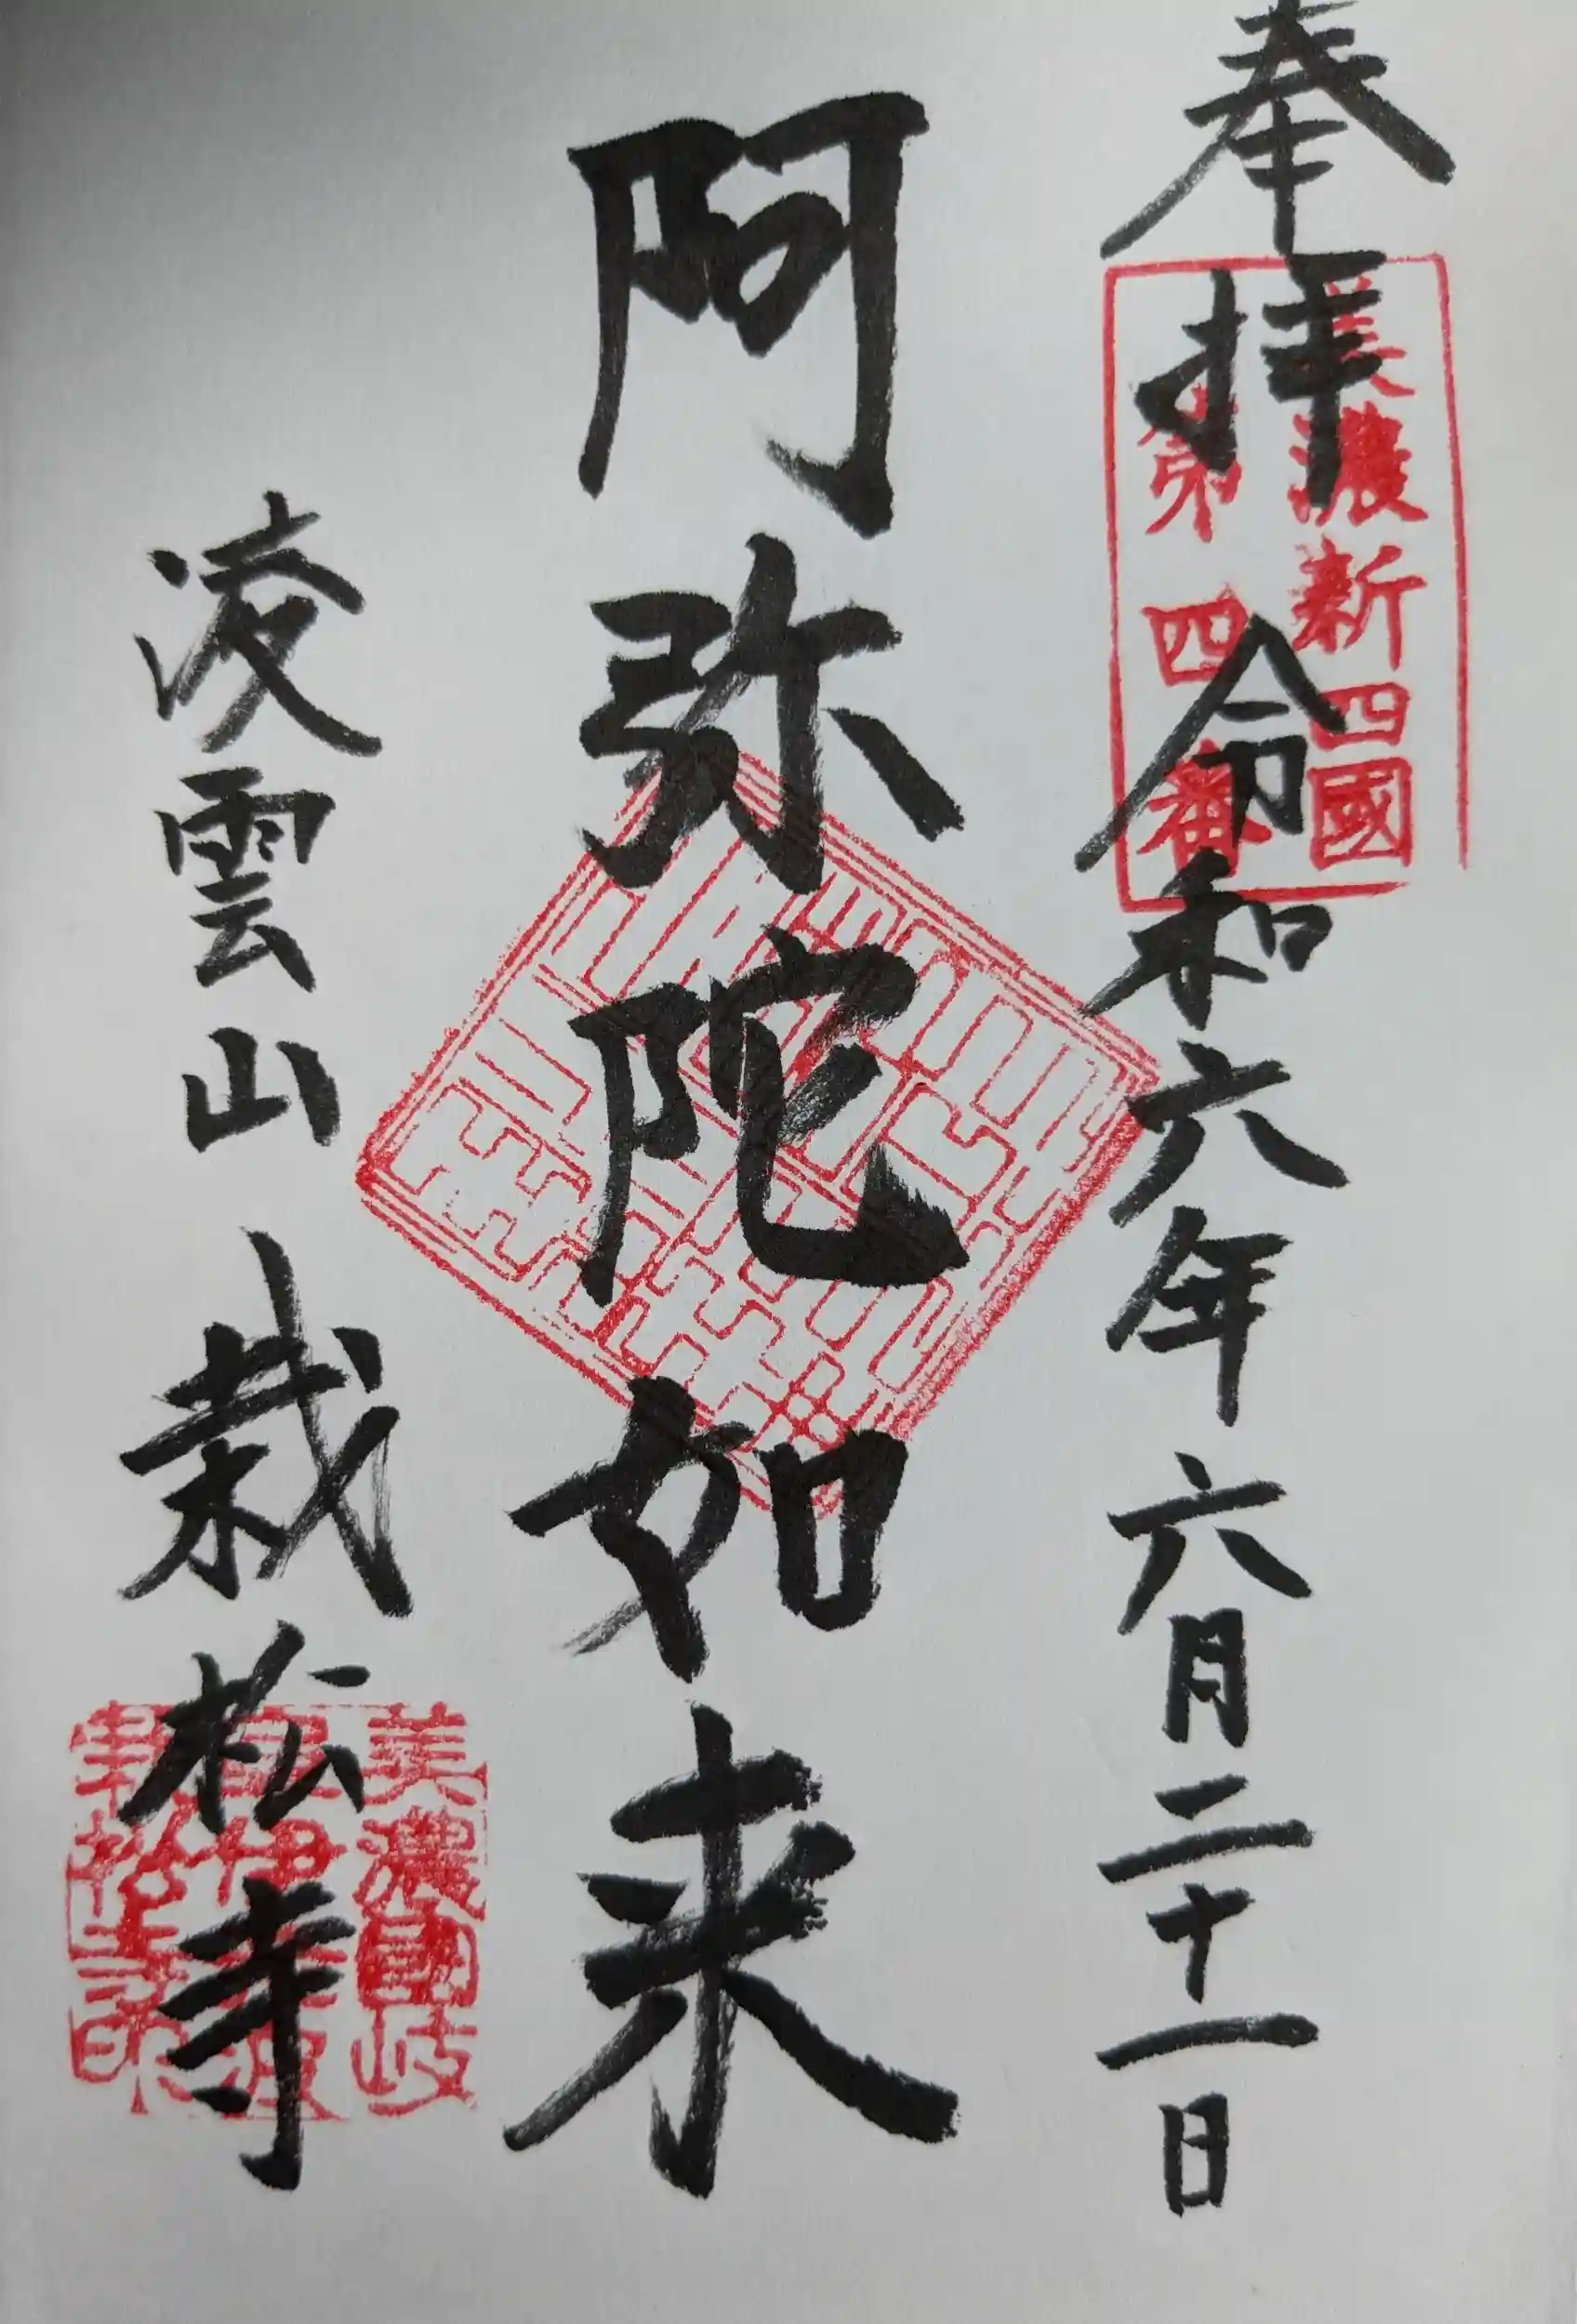 奉拝 令和六年六月二十一日
美濃新四國
第四番
阿弥陀如来
凌雲山 栽松寺
美濃國岐